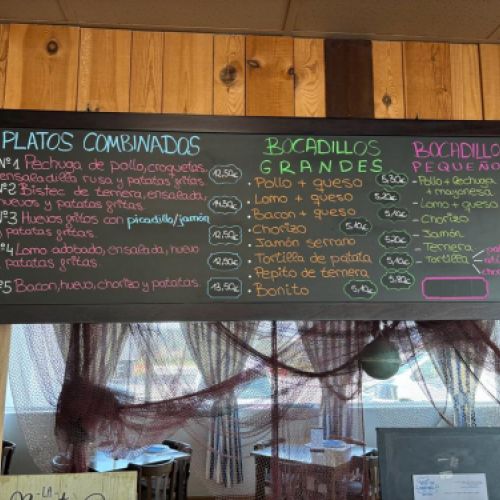 PLATOS COMBINADOS
Nº1 Pechuga de pollo, croquetas,
ensaladilla rusa y patatas fritas.
12,50€
Nº2 Bistec de ternera, ensalada,
huevos y patatas fritas.
14,50€
Nº3 Huevos fritos con picadillo/jamón
y patatas fritas.
12,50€
Nº4 Lomo adobado, ensalada, huevo
y patatas fritas.
12,50€
Nº5 Bacon, huevo, chorizo y patatas.
13,50€
BOCADILLOS
GRANDES
· Pollo + queso 5,20€
· Lomo + queso 5,20€
· Bacon + queso 5,10€
· Chorizo 5,10€
· Jamón serrano 5,20€
· Tortilla de patata 5,10€
· Pepito de ternera 5,80€
· Bonito 5,10€
BOCADILLO
PEQUEÑO
- Pollo + lechuga
+ mayonesa
- Lomo + queso
- Chorizo
- Jamón
- Ternera
- Tortilla